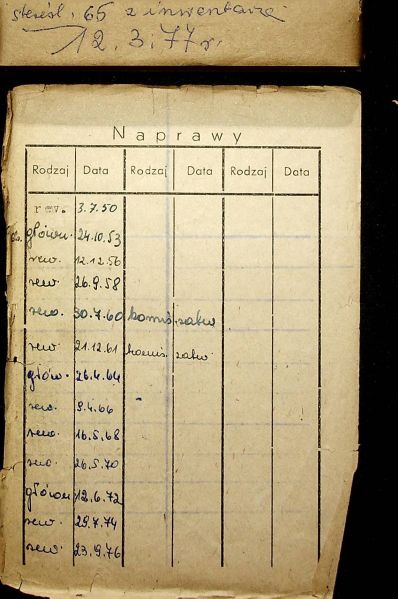 skreśl. 65 z inwentarza
12.3.77 r.
Naprawy
Rodzaj Data Rodzaj Data Rodzaj Data
rew. 3.7.50
główn. 24.10.53
rew. 12.12.56
rew. 26.9.58
rew. 30.7.60 komis. zatw
rew. 21.12.61 komis. zatw
głów. 26.4.64
rew. 9.4.66
rew. 16.5.68
rew. 26.5.70
główn 12.6.72
rew. 29.7.74
rew. 23.9.76